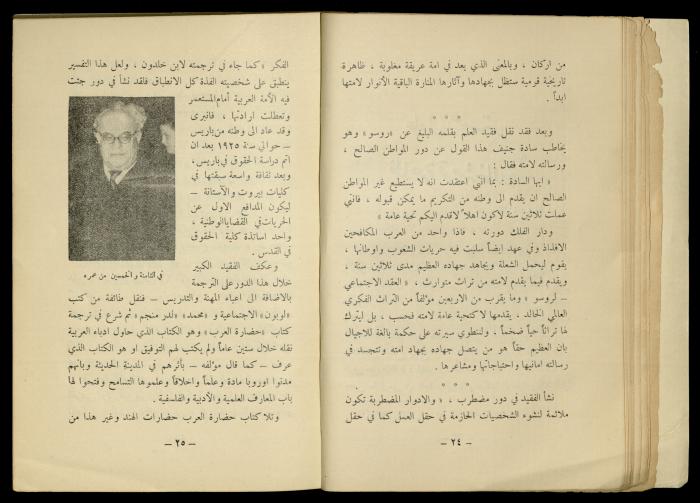 من اركان ، وبالمعنى الذي يعد في امة عريقة مغلوبة ، ظاهرة
تاريخية قومية ستظل بجهادها وآثارها المنارة الباقية الأنوار لامتها
ابداً .
* * *
وبعد فقد نقل فقيد العلم بقلمه البليغ عن «روسو» وهو
يخاطب سادة جنيف هذا القول عن دور المواطن الصالح ،
ورسالته لامته فقال :
« ايها السادة : بما انني اعتقدت انه لا يستطيع غير المواطن
الصالح ان يقدم الى وطنه من التكريم ما يمكن قبوله ، فانني
عملت ثلاثين سنة لاكون اهلاً لاقدم اليكم تحية عامة »
ودار الفلك دورته ، فاذا واحد من العرب المكافحين
الافذاذ وفي عهد ايضاً سلبت فيه حريات الشعوب واوطانها ،
يقوم ليحمل الشعلة ويجاهد جهاده العظيم مدى ثلاثين سنة ،
ويقدم فيما يقدم لامته من تراث متوارث ، « العقد الاجتماعي
– لروسو » وما يقرب من الاربعين مؤلفاً من التراث الفكري
العالمي الخالد . يقدمها لا كتحية عامة لامته فحسب ، بل ليترك
لها تراثاً حياً ضخماً . ولتنطوي سيرته على حكمة بالغة للاجيال
بان العظيم حقاً هو من يتصل جهاده بجهاد امته وتتجسد في
رسالته امانيها واحتياجاتها ومشاعرها .
* * *
نشأ الفقيد في دور مضطرب ، « والادوار المضطربة تكون
ملائمة لنشوء الشخصيات الحازمة في حقل العمل كما في حقل
– ٢٤ –
الفكر » كما جاء في ترجمته لابن خلدون . ولعل هذا التفسير
ينطبق على شخصيته الفذة كل الانطباق فلقد نشأ في دور جثت
فيه الأمة العربية أمام المستعمر
وتعطلت ارادتها ، فانبرى
وقد عاد الى وطنه من باريس
– حوالي سنة ١٩٢٥ بعد ان
اتم دراسة الحقوق في باريس ،
وبعد ثقافة واسعة سبقتها في
كليات بيروت والآستانة –
ليكون المدافع الاول عن
الحريات في القضايا الوطنية ،
واحد اساتذة كلية الحقوق
في القدس .
في الثامنة والخمسين من عمره
وعكف الفقيد الكبير
خلال هذا الدور على الترجمة
بالاضافة الى اعباء المهنة والتدريس – فنقل طائفة من كتب
«لوبون» الاجتماعية و «محمد» «لدر منجم» ثم شرع في ترجمة
كتاب «حضارة العرب» وهو الكتاب الذي حاول ادباء العربية
نقله خلال ستين عاماً ولم يكتب لهم التوفيق او هو الكتاب الذي
عرف – كما قال مؤلفه – بأثرهم في المدنية الحديثة وبانهم
مدنوا اوروبا مادة وعلماً واخلاقاً وعلموها التسامح وفتحوا لها
باب المعارف العلمية والأدبية والفلسفية .
وتلا كتاب حضارة العرب حضارات الهند وغير هذا من
– ٢٥ –